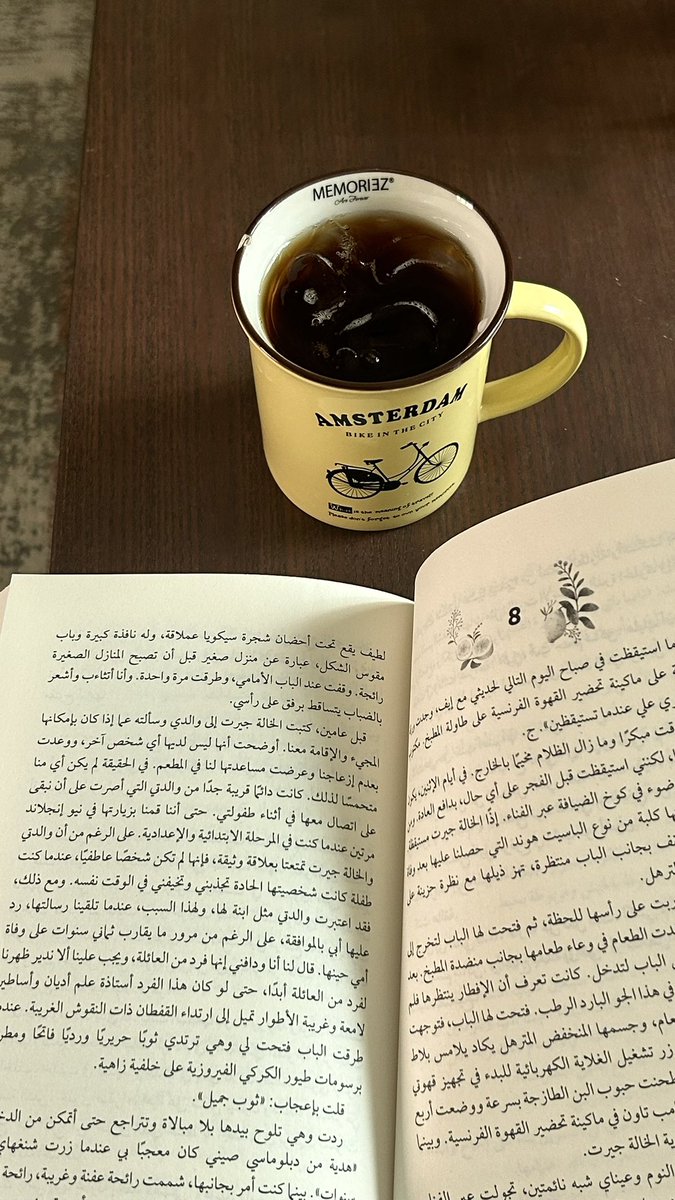 MEMORIEZ®
AMSTERDAM
BIKE IN THE CITY
is the meaning of travel?
Please don't forget to own your
لطيف يقع تحت أحضان شجرة سيكويا عملاقة، وله نافذة كبيرة وباب
مقوس الشكل، عبارة عن منزل صغير قبل أن تصبح المنازل الصغيرة
رائجة. وقفت عند الباب الأمامي، وطرقت مرة واحدة. وأنا أتثاءب وأشعر
بالضباب يتساقط برفق على رأسي.
قبل عامين، كتبت الخالة جيرت إلى والدي وسألته عما إذا كان بإمكانها
المجيء والإقامة معنا. أوضحت أنها ليس لديها أي شخص آخر، ووعدت
بعدم إزعاجنا وعرضت مساعدتها لنا في المطعم. في الحقيقة لم يكن أي منا
متحمسًا لذلك. كانت دائمًا قريبة جدًا من والدتي التي أصرت على أن نبقى
على اتصال معها في أثناء طفولتي. حتى أننا قمنا بزيارتها في نيو إنجلاند
مرتين عندما كنت في المرحلة الابتدائية والإعدادية. على الرغم من أن والدتي
والخالة جيرت تمتعتا بعلاقة وثيقة، فإنها لم تكن شخصًا عاطفيًا، عندما كنت
طفلة كانت شخصيتها الحادة تجذبني وتخيفني في الوقت نفسه. ومع ذلك،
فقد اعتبرت والدتي مثل ابنة لها، ولهذا السبب، عندما تلقينا رسالتها، رد
عليها أبي بالموافقة، على الرغم من مرور ما يقارب ثماني سنوات على وفاة
أمي حينها. قال لنا أنا ودافني إنها فرد من العائلة، ويجب علينا ألا ندير ظهرنا
لفرد من العائلة أبدًا، حتى لو كان هذا الفرد أستاذة علم أديان وأساطير
لامعة وغريبة الأطوار تميل إلى ارتداء القفطان ذات النقوش الغريبة. عندما
طرقت الباب فتحت لي وهي ترتدي ثوبًا حريريًا ورديًا فاتحًا
برسومات طيور الكركي الفيروزية على خلفية زاهية.
قلت بإعجاب: «ثوب جميل».
ردت وهي تلوح بيدها بلا مبالاة وتتراجع حتى أتمكن من
«هدية من دبلوماسي صيني كان معجبًا بي عندما زرت شنغهاي
سنوات». بينما كنت أمر بجانبها، شممت رائحة عفنة وغريبة، رائحة
8
استيقظت في صباح اليوم التالي لحديثي مع إيف، وجدت
على ماكينة تحضير القهوة الفرنسية على طاولة المطبخ.
علي عندما تستيقظين». ج.
مبكرًا وما زال الظلام مخيمًا بالخارج. في أيام الإثنين،
لكنني استيقظت قبل الفجر على أي حال، بدافع العادة.
ضوء في كوخ الضيافة عبر الفناء. إذًا الخالة جيرت مستيقظة
كلبة من نوع الباسيت هوند التي حصلنا عليها بعد وفاة
بجانب الباب منتظرة، تهز ذيلها مع نظرة حزينة على
المترهل.
على رأسها للحظة، ثم فتحت لها الباب لتخرج إلى
الطعام في وعاء طعامها بجانب منضدة المطبخ. بعد
الباب لتدخل. كانت تعرف أن الإفطار ينتظرها فلم
في هذا الجو البارد الرطب. فتحت لها الباب، فتوجهت
وجسمها المنخفض المترهل يكاد يلامس بلاط
زر تشغيل الغلاية الكهربائية للبدء في تجهيز قهوتي
طحنت حبوب البن الطازجة بسرعة ووضعت أربع
تاون في ماكينة تحضير القهوة الفرنسية. وبينما
الخالة جيرت.
النوم وعيناي شبه نائمتين، تجولت عبر